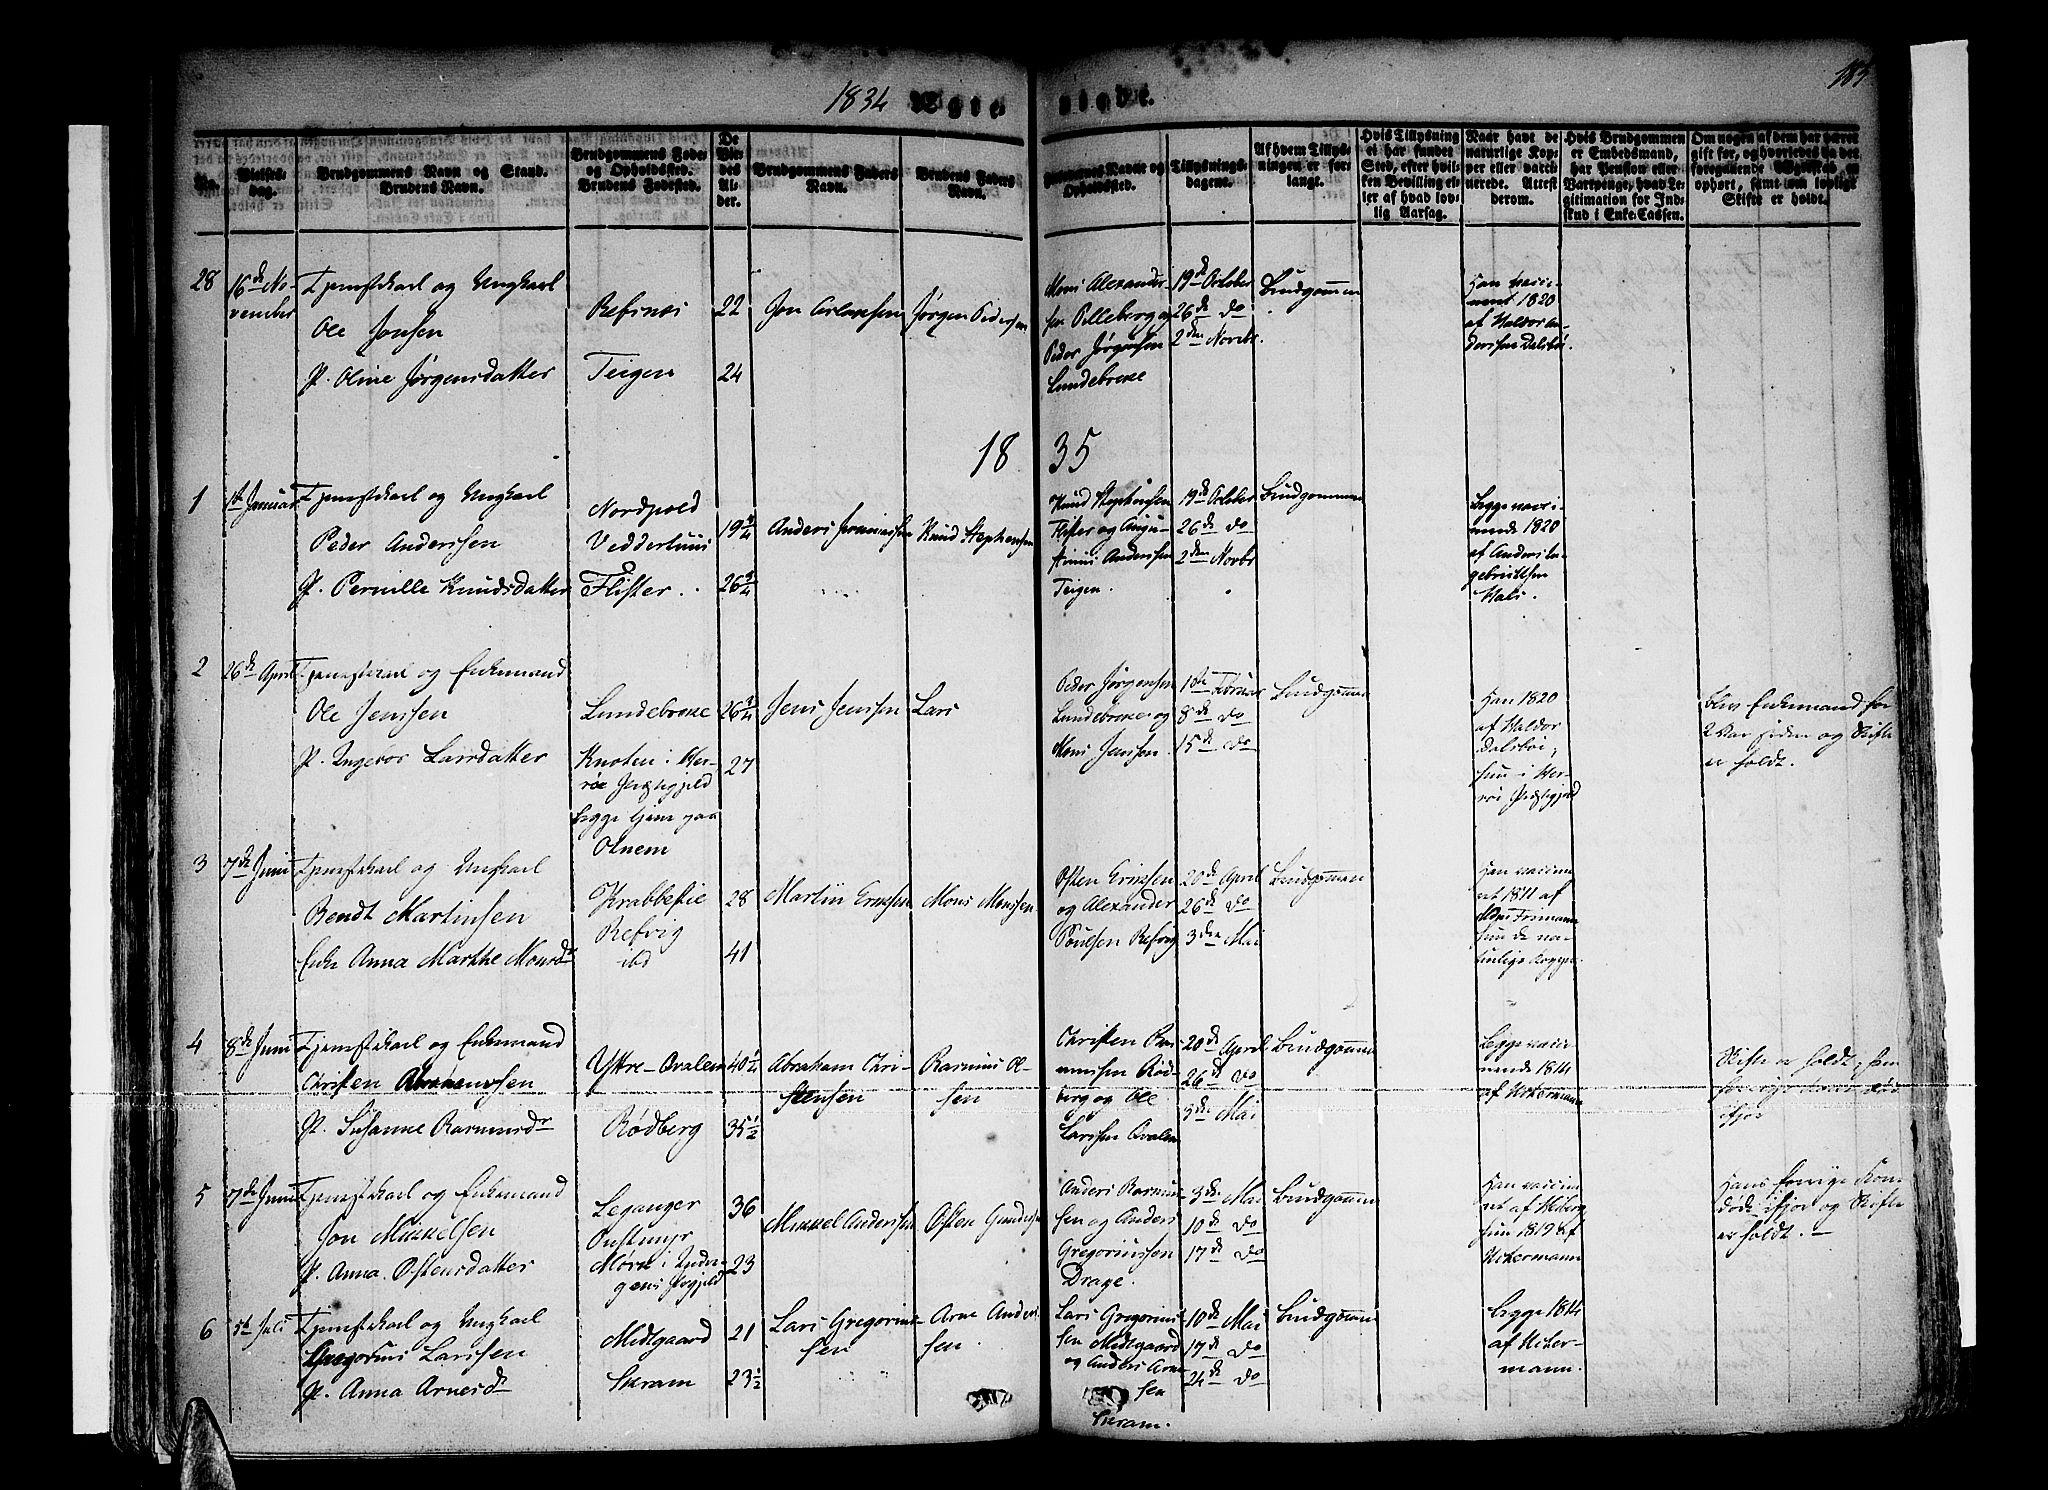 1834 Ægte viede. 185
No.
Vielses-
dag.
Brudgommens Navn og Stand.
Brudens Navn.
Brudgommens Føde-
og Opholdssted.
Brudens Fødested.
De
Vie-
des
Al-
der.
Brudgommens Faders
Navn.
Brudens Faders
Navn.
Forlovernes Navne og
Opholdssted.
Tillysnings-
dagene.
Af hvem Tillys-
ningen er for-
langt.
Hvis Tillysning
ei har fundet
Sted, efter hvil-
ken Bevilling el-
ler af hvad lov-
lig Aarsag.
Naar have de
naturlige Kop-
per eller vacci-
nerede. Attest
derom.
Hvis Brudgommen
er Embedsmand,
har Pension eller
Vartpenge, hvad Le-
gitimation for Ind-
skud i Enke-Cassen.
Om nogen af dem har været
gift før, og hvorledes da det
foregaaende Ægteskab er
ophørt, samt om lovligt
Skifte er holdt.
28
16de No-
vember
Tjenestekarl og Ungkarl
Ole Jonsen
P. Oline Jørgensdatter
Refsnes
Teigen
22
24
Jon
Jørgen Pedersen
Mons Alexander-
sen Pilleberg og
Peder Jørgensen
Lundebrekke
19de October
26de do
2den Novbr.
Brudgommen
Han vacci-
neret 1820
af Haldor An-
dersen Dalsbø.
1835
1
1ste Januar
Tjenestekarl og Ungkarl
Peder Andersen
P. Pernille Knudsdatter
Nordpold
Flister.
19 3/4
26 3/4
Anders
Knud Stephensen
Knud Stephensen
Flister og
Andersen
Teigen.
19de October
26de do
2den Novbr
Brudgommen
Begge vacci-
nerede 1820
af Anders In-
gebrigtsen
Hals.
2
26de April
Tjenestekarl og Enkemand
Ole Jensen
P. Ingebor Larsdatter
Lundebrekke
Knoten i Her-
røe Præstegjeld
begge tjene paa
Osnem
26 3/4
27
Jens Jensen
Lars
Peder Jørgensen
Lundebrekke og
Mons Jensen.
1ste Februar
8de do
15de do
Brudgommen
Han 1820
af Haldor
Dalsbø,
hun i Her-
røe Præstegjeld
Blev Enkemand for
2 Aar siden og Skifte
er holdt.
3
7de Juni
Tjenestekarl og Ungkarl
Bendt Martinsen
Enke Anna Marthe Monsdr
Krabbestie
Refvig
ibd
28
41
Martin Ericksen
Mons Monssen
Østen Ericksen
og Alexander
Poulsen Refvig
20de April
26de do
3die Mai
Brudgommen
Han vaccine-
ret 1811 af
Frimann
hun de na-
turlige Kopper.
4
8de Juni
Tjenestekarl og Enkemand
Christen Abrahamsen
P. Susanne Rasmusdr
Yttre-Qvalem
Rødberg
40 1/2
35 1/2
Abraham Chri-
stensen
Rasmus Ol-
sen
Christen Ras-
mussen Rød-
berg og Ole
Larssen Qvalem
20de April
26de do
3die Mai
Brudgommen
Begge vacci-
nerede 1814
af Uckermann
Skifte er holdt, han
forrige Kone død
ifjor
5
7de Juni
Tjenestekarl og Enkemand
Jon Mickelsen
P. Anna Østensdatter
Leganger
Mørk i
gens Præstegjeld
36
23
Mickel Andersen
Østen Gunders
Anders Rasmus-
sen og Anders
Gregoriussen
Drage.
3die Mai
10de do
17de do
Brudgommen
Han vaccine-
ret af Heiberg
hun 1819 af
Uckermann
Hans forrige Kone
døde ifjor og Skifte
er holdt. —
6
5te Juli
Tjenestekarl og Ungkarl
Gregorius Larssen
P. Anna Arnesdr
Midtgaard
Skram
21
23 1/2
Lars Gregorius-
sen
Arne Ander-
sen.
Lars Gregorius-
sen Midtgaard
og Anders Arne-
sen
Skram.
10de Mai
17de do
24de do
Brudgommen
begge 1814
af Ucker-
mann.